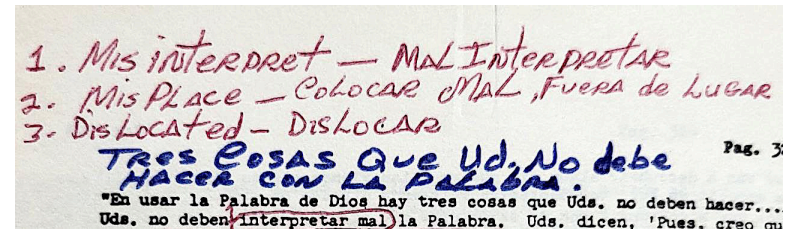 1. Misinterpret — Mal Interpretar
2. Misplace — Colocar Mal, Fuera de Lugar
3. Dislocated — Dislocar
Tres Cosas Que Ud. No debe
Hacer con la Palabra.
Pag.
"En usar la Palabra de Dios hay tres cosas que Uds. no deben hacer....
Uds. no deben interpretar mal la Palabra. Uds. dicen, 'Pues, creo